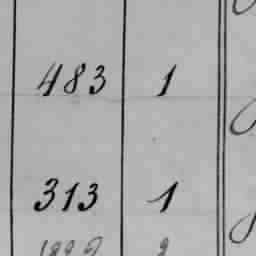 483 1
313 1